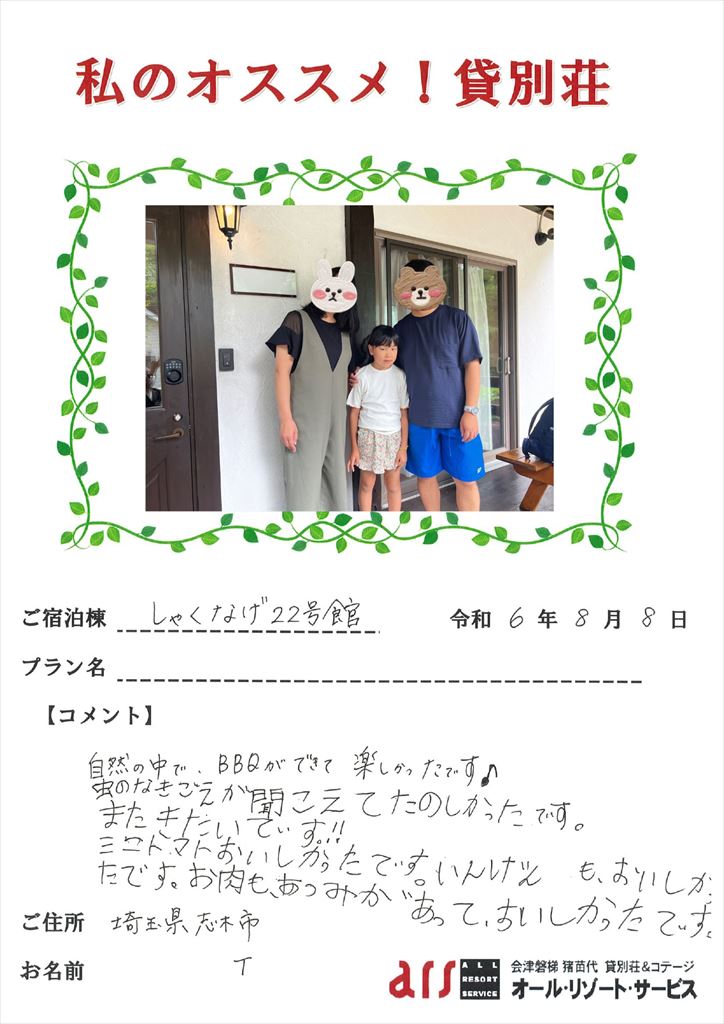 私のオススメ！貸別荘
ご宿泊棟 しゃくなげ22号館 令和 6 年 8 月 8 日
プラン名
【コメント】
自然の中で、BBQができて 楽しかったです♪
虫のなきごえが聞こえてたのしかったです。
またきたいでいす!!
ミニトマトおいしかったです。いんげん も、おいしか
たです。お肉も、あつみが
あって、おいしかったです。
ご住所 埼玉県志木市
お名前 T
ars ALL RESORT SERVICE 会津磐梯 猪苗代 貸別荘&コテージ
オール・リゾート・サービス